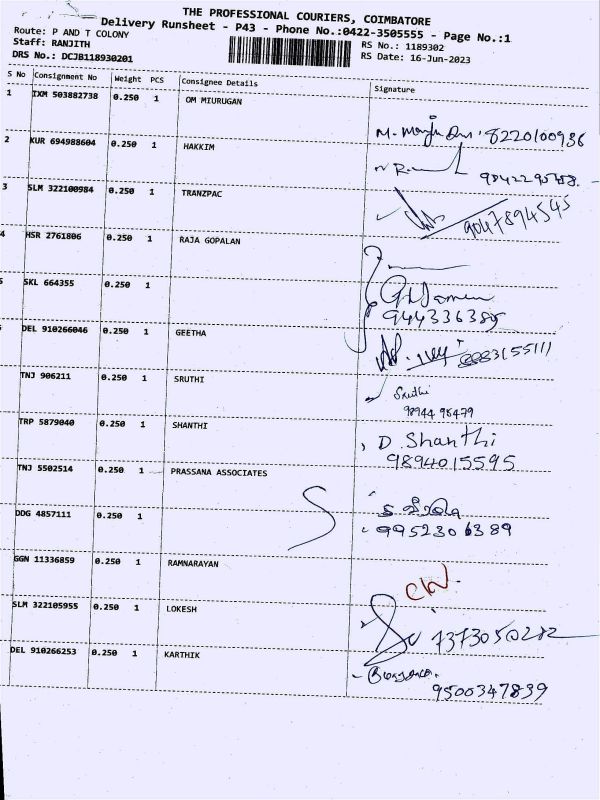 THE PROFESSIONAL COURIERS, COIMBATORE
Delivery Runsheet - P43 - Phone No.:0422-3505555 - Page No.:1
Route: P AND T COLONY
Staff: RANJITH
RS No.: 1189302
DRS No.: DCJB118930201
RS Date: 16-Jun-2023
S No Consignment No Weight PCS Consignee Details Signature
1 IXM 503882738 0.250 1 OM MIURUGAN
8220100936
2 KUR 694988604 0.250 1 HAKKIM
3 SLM 322100984 0.250 1 TRANZPAC
9047894545
4 HSR 2761806 0.250 1 RAJA GOPALAN
SKL 664355 0.250 1
DEL 910266046 0.250 1 GEETHA
TNJ 906211 0.250 1 SRUTHI
Sruthi
98944 98479
TRP 5879040 0.250 1 SHANTHI
D. Shanthi
9894015595
TNJ 5502514 0.250 1 PRASSANA ASSOCIATES
DDG 4857111 0.250 1
9952306389
GGN 11336859 0.250 1 RAMNARAYAN
SLM 322105955 0.250 1 LOKESH
7373050282
DEL 910266253 0.250 1 KARTHIK
9500347839